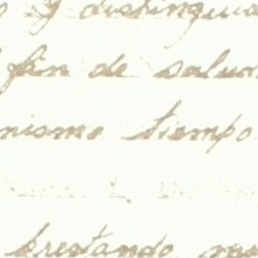 y distingui
fin de salu
mismo tiempo
prestando